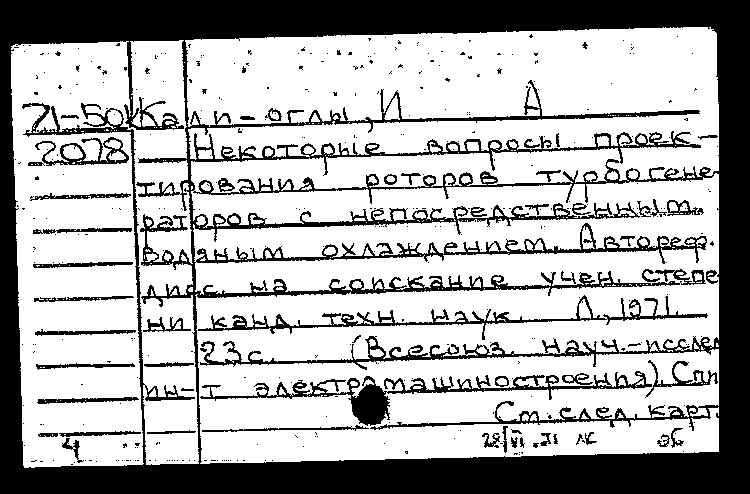 71-50 Кади-оглы, И А
2078 Некоторые вопросы проек-
тирования роторов турбогене
раторов с непосредственным
водяным охлаждением. Автореф.
дисс. на соискание учен. степе
ни канд. техн. наук. Л., 1971.
23 с. (Всесоюз. науч.-исслед
ин-т электромашиностроения). Спи
См. след. карт.
4 28/VI.71 эб